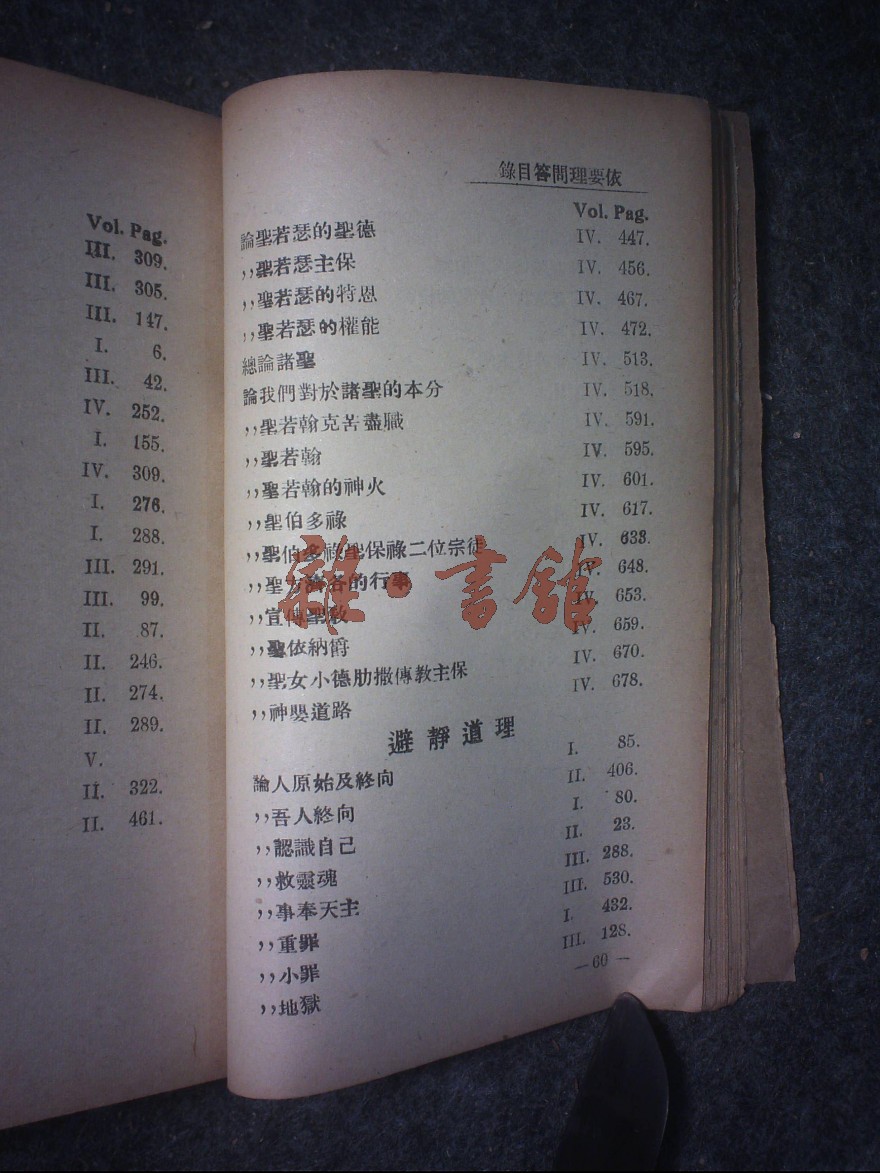 Vol. Pag.
III. 309.
III. 305.
III. 147.
I. 6.
III. 42.
IV. 252.
I. 155.
IV. 309.
I. 276.
I. 288.
III. 291.
III. 99.
II. 87.
II. 246.
II. 274.
II. 289.
V.
II. 322.
II. 461.
依要理問答目錄
Vol. Pag.
論聖若瑟的聖德 IV. 447.
,,聖若瑟主保 IV. 456.
,,聖若瑟的特恩 IV. 467.
,,聖若瑟的權能 IV. 472.
總論諸聖 IV. 513.
論我們對於諸聖的本分 IV. 518.
,,聖若翰克苦盡職 IV. 591.
,,聖若翰 IV. 595.
,,聖若翰的神火 IV. 601.
,,聖伯多祿 IV. 617.
,,聖伯多祿聖保祿二位宗徒 IV. 633.
,,聖方濟各的行事 IV. 648.
,,宣傳聖教 IV. 653.
,,聖依納爵 IV. 659.
,,聖女小德肋撒傳教主保 IV. 670.
,,神嬰道路 IV. 678.
避靜道理
論人原始及終向 I. 85.
,,吾人終向 II. 406.
,,認識自己 I. 80.
,,救靈魂 II. 23.
,,事奉天主 III. 288.
,,重罪 III. 530.
,,小罪 I. 432.
,,地獄 III. 128.
—60—
雜·書館